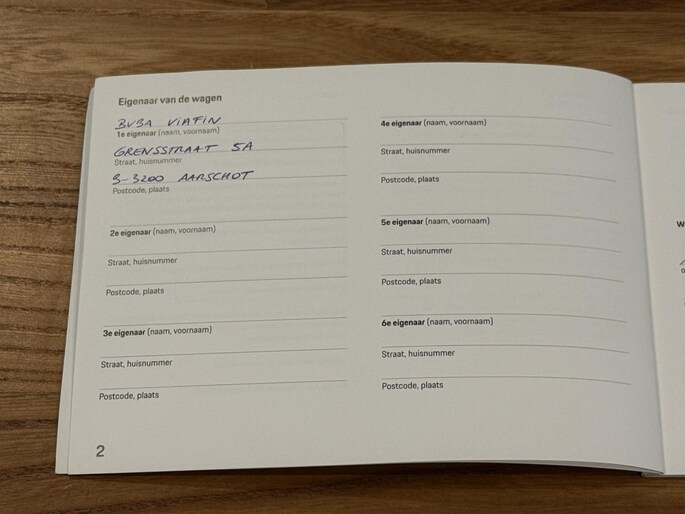 Eigenaar van de wagen
BVBA VIAFIN
1e eigenaar (naam, voornaam)
GRENSSTRAAT 5A
Straat, huisnummer
B-3200 AARSCHOT
Postcode, plaats
2e eigenaar (naam, voornaam)
Straat, huisnummer
Postcode, plaats
3e eigenaar (naam, voornaam)
Straat, huisnummer
Postcode, plaats
2
4e eigenaar (naam, voornaam)
Straat, huisnummer
Postcode, plaats
5e eigenaar (naam, voornaam)
Straat, huisnummer
Postcode, plaats
6e eigenaar (naam, voornaam)
Straat, huisnummer
Postcode, plaats